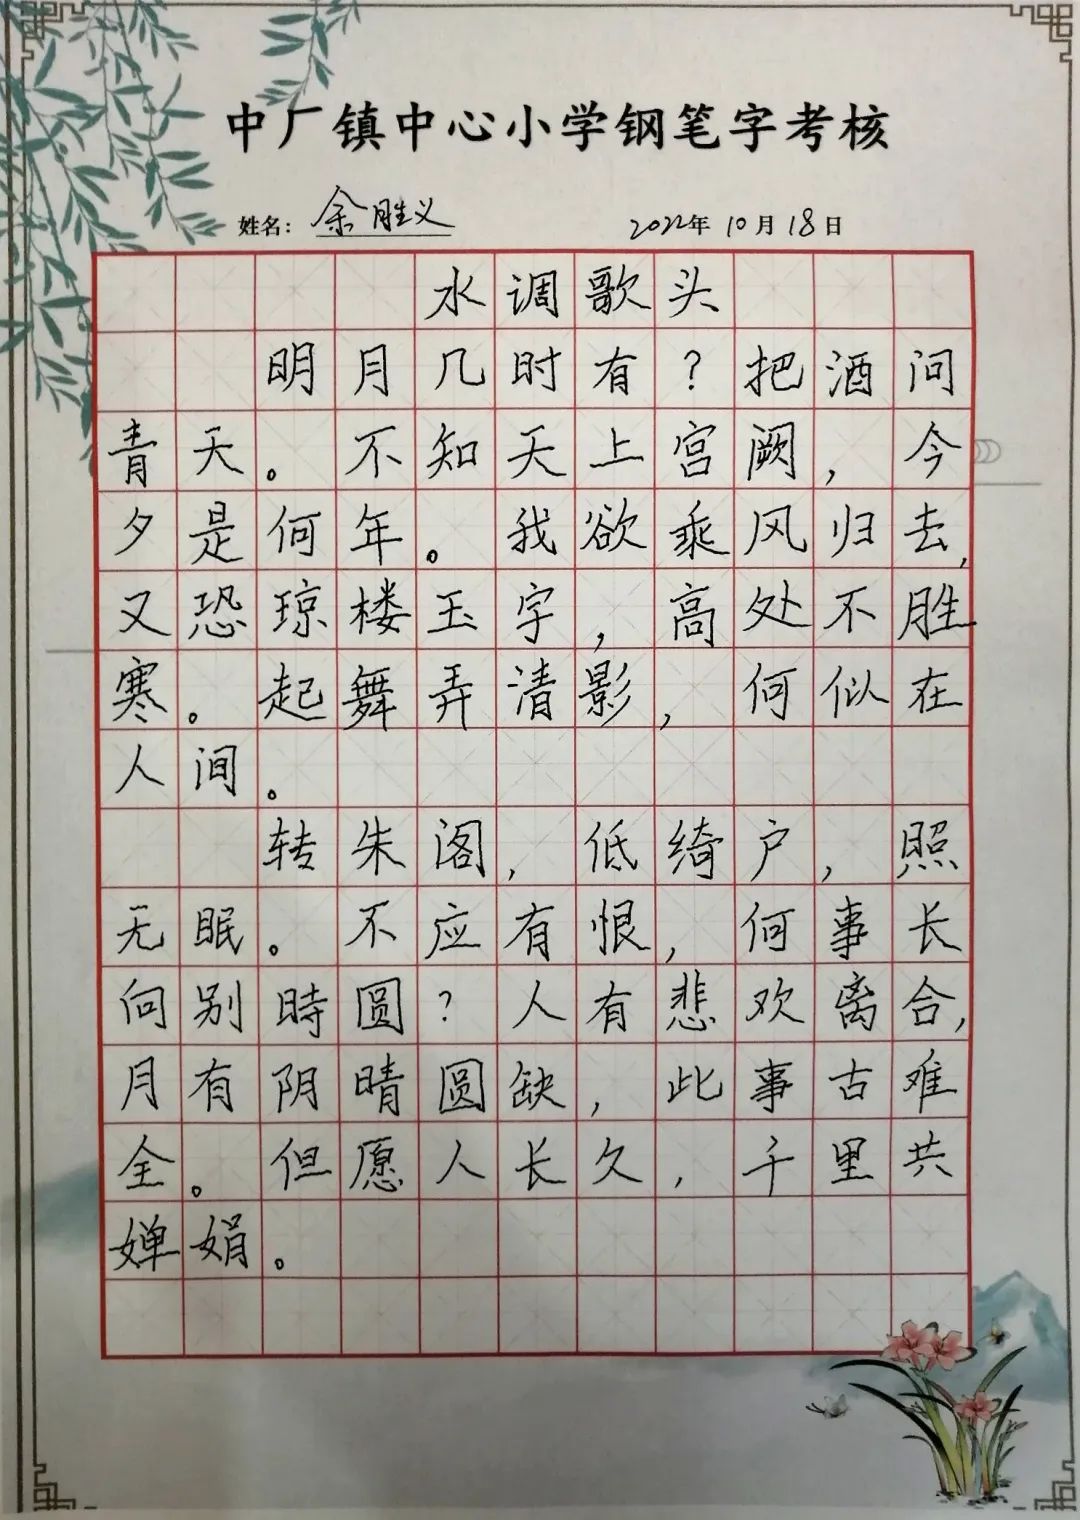 中厂镇中心小学钢笔字考核
姓名：余胜义 2022年10月18日
水调歌头
明月几时有？把酒问
青天。不知天上宫阙，今
夕是何年。我欲乘风归去，
又恐琼楼玉字，高处不胜
寒。起舞弄清影，何似在
人间。
转朱阁，低绮户，照
无眠。不应有恨，何事长
向别時圆？人有悲欢离合，
月有阴晴圆缺，此事古难
全。但愿人长久，千里共
婵娟。